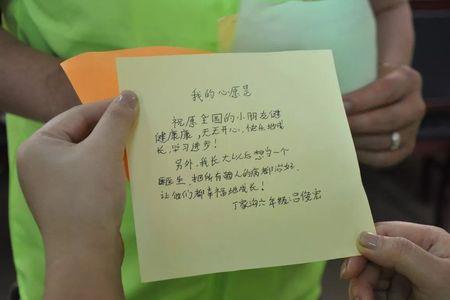 我的心愿是
祝愿全国的小朋友健
健康康,天天开心,快乐地成
长,学习进步!
另外,我长大以后想当一个
医生,把所有病人的病都治好,
让他们都幸福地成长!
丁家沟六年级:吕俊宏